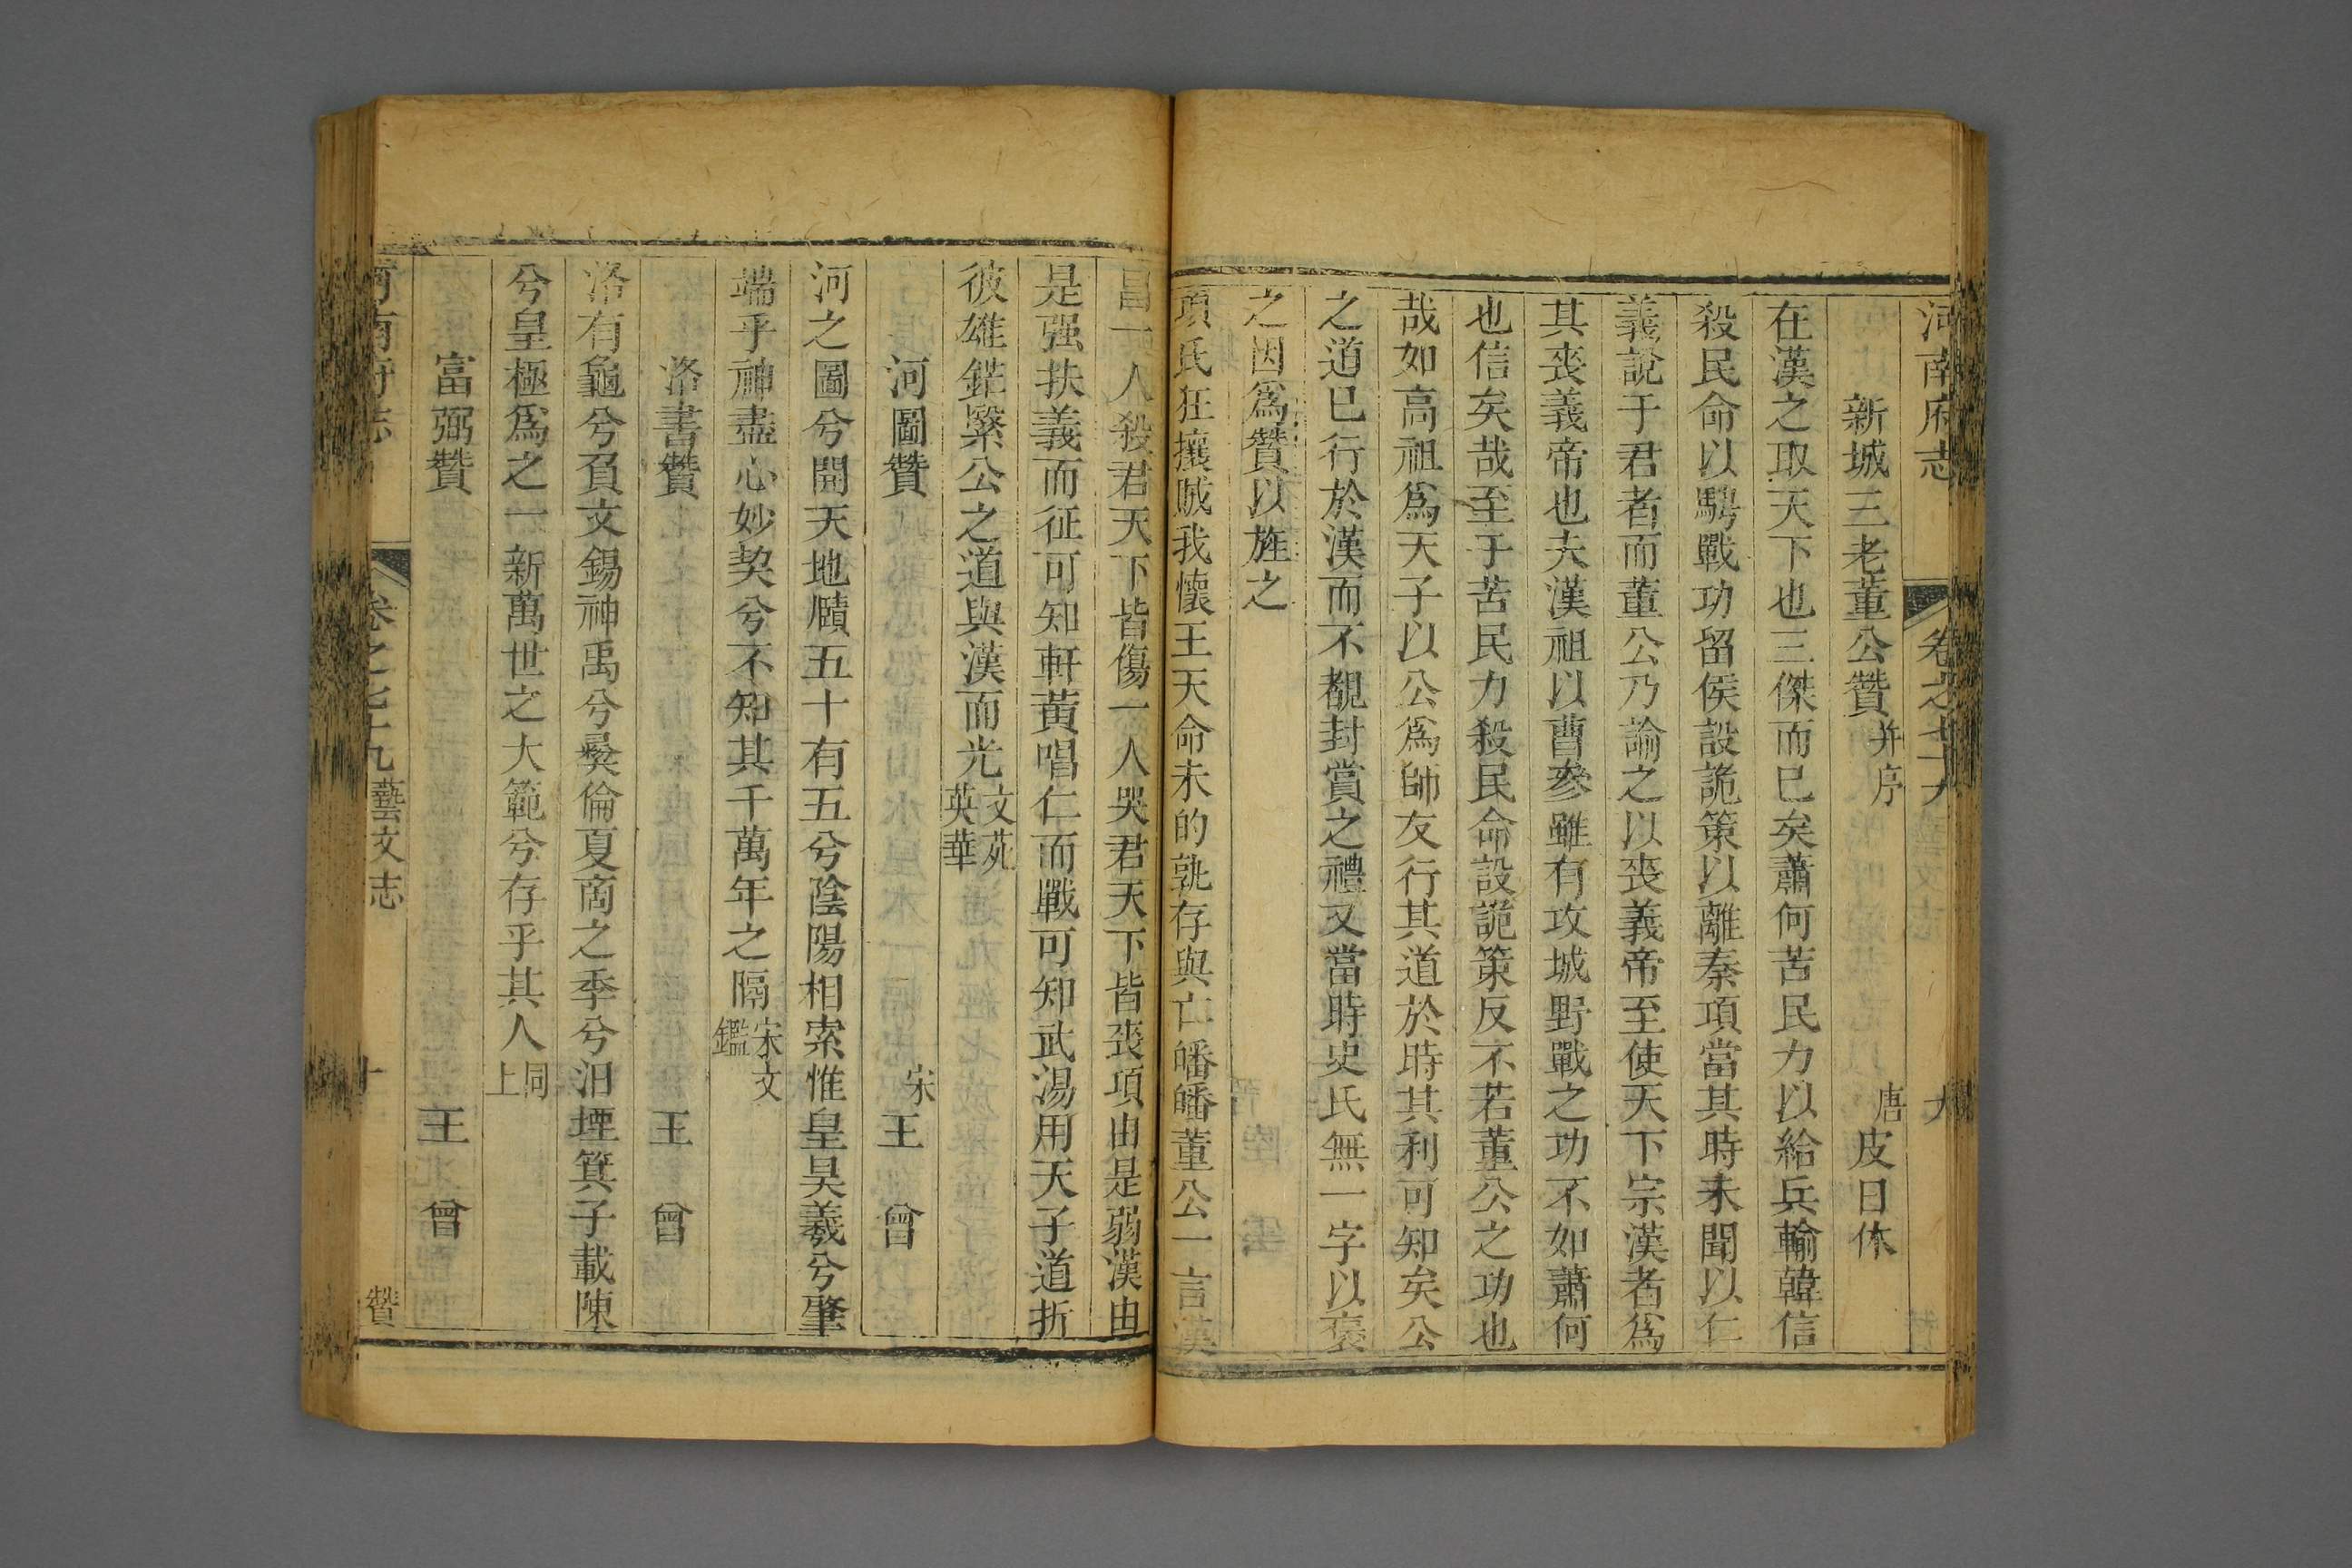 河南府志
卷之七十九
九
新城三老董公贊并序 唐皮日休
在漢之取天下也三傑而已矣蕭何苦民力以給兵輸韓信
殺民命以騁戰功留侯設詭策以離秦項當其時未聞以仁
義說于君者而董公乃諭之以喪義帝至使天下宗漢者爲
其喪義帝也夫漢祖以曹參雖有攻城野戰之功不如蕭何
也信矣哉至于苦民力殺民命設詭策反不若董公之功也
哉如高祖爲天子以公爲師友行其道於時其利可知矣公
之道已行於漢而不覩封賞之禮又當時史氏無一字以褒
之因爲贊以旌之
項氏狂攘賊我懷王天命未的孰存與亡皤皤董公一言漢
昌一人殺君天下皆傷一人哭君天下皆喪項由是弱漢由
是强扶義而征可知軒黃唱仁而戰可知武湯用天子道折
彼雄鋩繄公之道與漢而光文苑英華
河圖贊 宋王曾
河之圖兮開天地賾五十有五兮陰陽相索惟皇昊羲兮肇
端乎神盡心妙契兮不知其千萬年之隔宋文鑑
洛書贊 王曾
洛有龜兮負文錫神禹兮彝倫夏商之季兮汨堙箕子載陳
兮皇極爲之一新萬世之大範兮存乎其人同上
富弼贊 王曾
河南府志
卷之七十九藝文志
十
贊